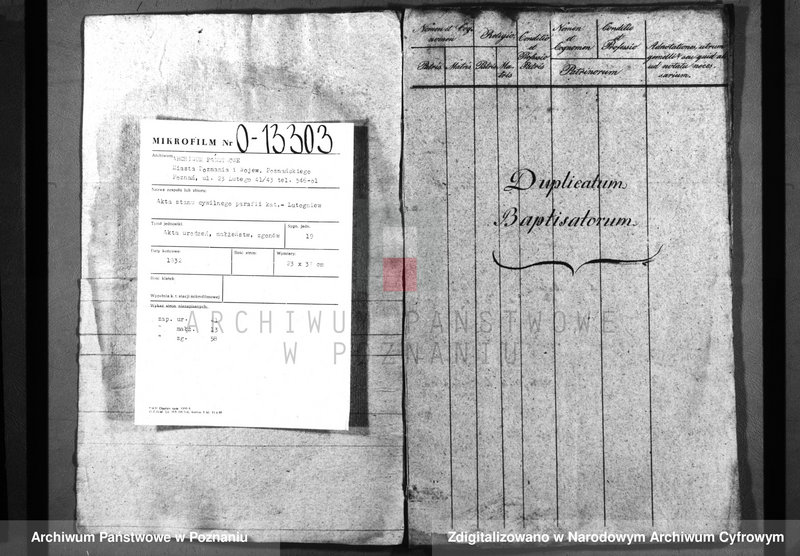 MIKROFILM Nr O-13303
Archiwum
ARCHIWUM PAŃSTWOWE
Miasta Poznania i Wojew. Poznańskiego
Poznań, ul. 23 Lutego 41/43 tel. 546-01
Nazwa zespołu lub zbioru:
Akta stanu cywilnego parafii kat.- Lutogniew
Tytuł jednostki:
Sygn. jedn.
Akta urodzeń, małżeństw, zgonów
19
Daty końcowe:
Ilość stron:
Wymiary:
1832
Ilość klatek
Wypełnia k. t. stacji mikrofilmowej
Wykaz stron niezapisanych:
zap. ur.
" małż. 13
" zg. 58
Nomen et Cognomen
Religio
Conditio et Professio Patris
Nomen et Cognomen
Conditio et Professio
Patris
Matris
Patris
Matris
Patrinorum
Adnotationes, utrum gemelli seu quid aliud notatu necessarium.
Duplicatum
Baptisatorum
ARCHIWUM PAŃSTWOWE
W POZNANIU
Archiwum Państwowe w Poznaniu
Zdigitalizowano w Narodowym Archiwum Cyfrowym